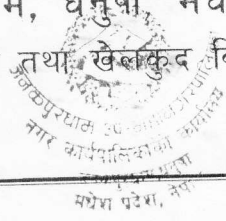 म, धनुषा, मधे
तथा खेलकुद वि
जनकपुरधाम उप-महानगरपालिका
नगर कार्यपालिकाको कार्यालय
मधेश प्रदेश, नेपाल